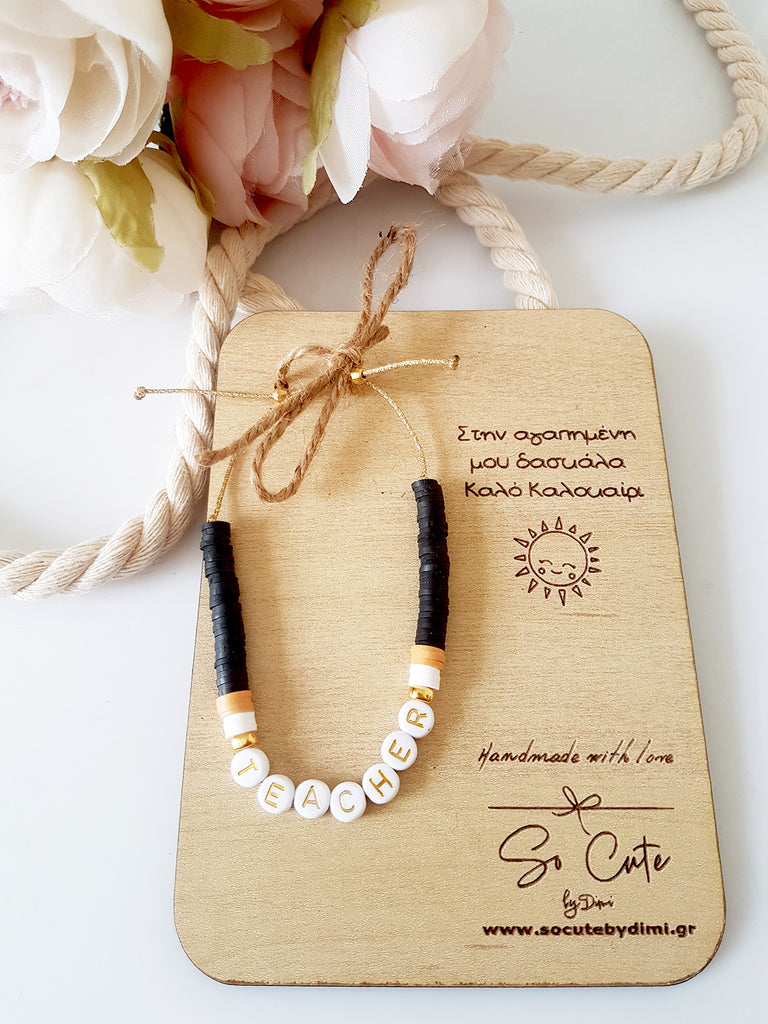 Στην αγαπημένη
μου δασκάλα
Καλό Καλοκαίρι
TEACHER
Handmade with love
So Cute
by Dimi
www.socutebydimi.gr